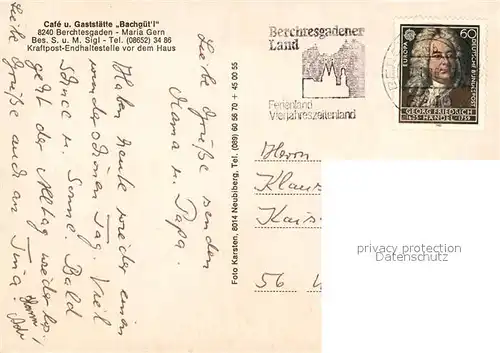 Café u. Gaststätte „Bachgüt'l"
8240 Berchtesgaden - Maria Gern
Bes. S. u. M. Sigl - Tel. (08652) 34 86
Kraftpost-Endhaltestelle vor dem Haus
Haben heute wieder einen
wunderschönen Tag. Viel
Schnee u. Sonne. Bald
geht der Alltag wieder los.
Liebe Grüße auch an Tina
Liebe Grüße senden
Mama u. Papa.
Foto Karsten, 8014 Neubiberg, Tel. (089) 60 56 70 + 45 00 55
Berchtesgadener
Land
Ferienland
Vierjahreszeitenland
EUROPA
60
DEUTSCHE BUNDESPOST
GEORG FRIEDRICH
HÄNDEL
1685 1759
Herrn
Klaus
Kais
56
privacy protection
www.oldthing.com